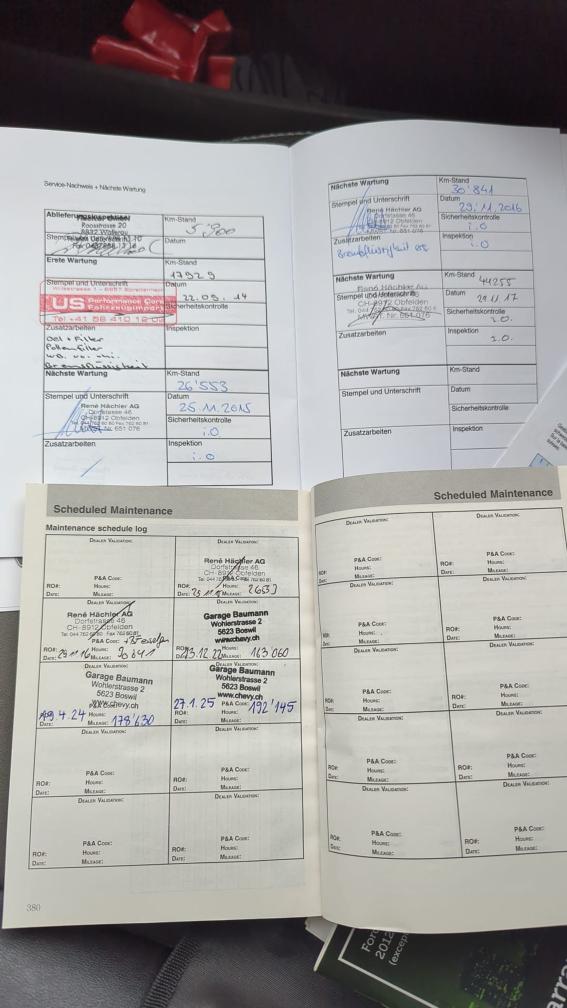 Service-Nachweis + Nächste Wartung
Ablieferungsinspektion
Km-Stand
Datum
Erste Wartung
Km-Stand
17929
Stempel und Unterschrift
Datum
22.09.14
US Performance Cars
Fahrzeugimport
Sicherheitskontrolle
Zusatzarbeiten
Inspektion
Oel + Filter
Pollenfilter
Bremsflüssigkeit
Nächste Wartung
Km-Stand
26'553
Stempel und Unterschrift
Datum
25.11.2015
René Hächler AG
Dorfstrasse 46
CH-8912 Obfelden
Sicherheitskontrolle
i.O
Zusatzarbeiten
Inspektion
i.O
Nächste Wartung
Km-Stand
30'841
Stempel und Unterschrift
Datum
29.11.2016
René Hächler AG
Dorfstrasse 46
CH-8912 Obfelden
Sicherheitskontrolle
i.O
Zusatzarbeiten
Inspektion
i.O
Nächste Wartung
Km-Stand
44255
Stempel und Unterschrift
Datum
René Hächler AG
CH-8912 Obfelden
Sicherheitskontrolle
i.O.
Zusatzarbeiten
Inspektion
i.O.
Nächste Wartung
Km-Stand
Stempel und Unterschrift
Datum
Sicherheitskontrolle
Zusatzarbeiten
Inspektion
Scheduled Maintenance
Maintenance schedule log
Dealer Validation:
P&A Code:
RO#: Hours:
Date: Mileage:
Dealer Validation:
René Hächler AG
Dorfstrasse 46
CH-8912 Obfelden
P&A Code:
RO#: Hours:
Date: Mileage:
Dealer Validation:
René Hächler AG
Dorfstrasse 46
CH-8912 Obfelden
P&A Code:
RO#: Hours:
Date: 29 11 16 Mileage: 30 841
Dealer Validation:
Garage Baumann
Wohlerstrasse 2
5623 Boswil
www.chevy.ch
RO#: Hours:
Date: 23.12.22 Mileage: 163 060
Dealer Validation:
Garage Baumann
Wohlerstrasse 2
5623 Boswil
www.chevy.ch
19.4.24 Hours:
Date: Mileage: 178'630
Dealer Validation:
Garage Baumann
Wohlerstrasse 2
5623 Boswil
www.chevy.ch
27.1.25 P&A Code: 192'145
RO#: Hours:
Date: Mileage:
Dealer Validation:
P&A Code:
RO#: Hours:
Date: Mileage:
Dealer Validation:
P&A Code:
RO#: Hours:
Date: Mileage:
Dealer Validation:
P&A Code:
RO#: Hours:
Date: Mileage:
Dealer Validation:
P&A Code:
RO#: Hours:
Date: Mileage:
380
Scheduled Maintenance
Dealer Validation:
P&A Code:
RO#: Hours:
Date: Mileage:
Dealer Validation:
P&A Code:
RO#: Hours:
Date: Mileage:
Dealer Validation:
P&A Code:
RO#: Hours:
Date: Mileage:
Dealer Validation:
P&A Code:
RO#: Hours:
Date: Mileage:
Dealer Validation:
P&A Code:
RO#: Hours:
Date: Mileage:
Dealer Validation:
P&A Code:
RO#: Hours:
Date: Mileage:
Dealer Validation:
P&A Code:
RO#: Hours:
Date: Mileage:
Dealer Validation:
P&A Code:
RO#: Hours:
Date: Mileage:
Dealer Validation:
P&A Code:
RO#: Hours:
Date: Mileage:
Dealer Validation:
P&A Code:
RO#: Hours:
Date: Mileage:
2012